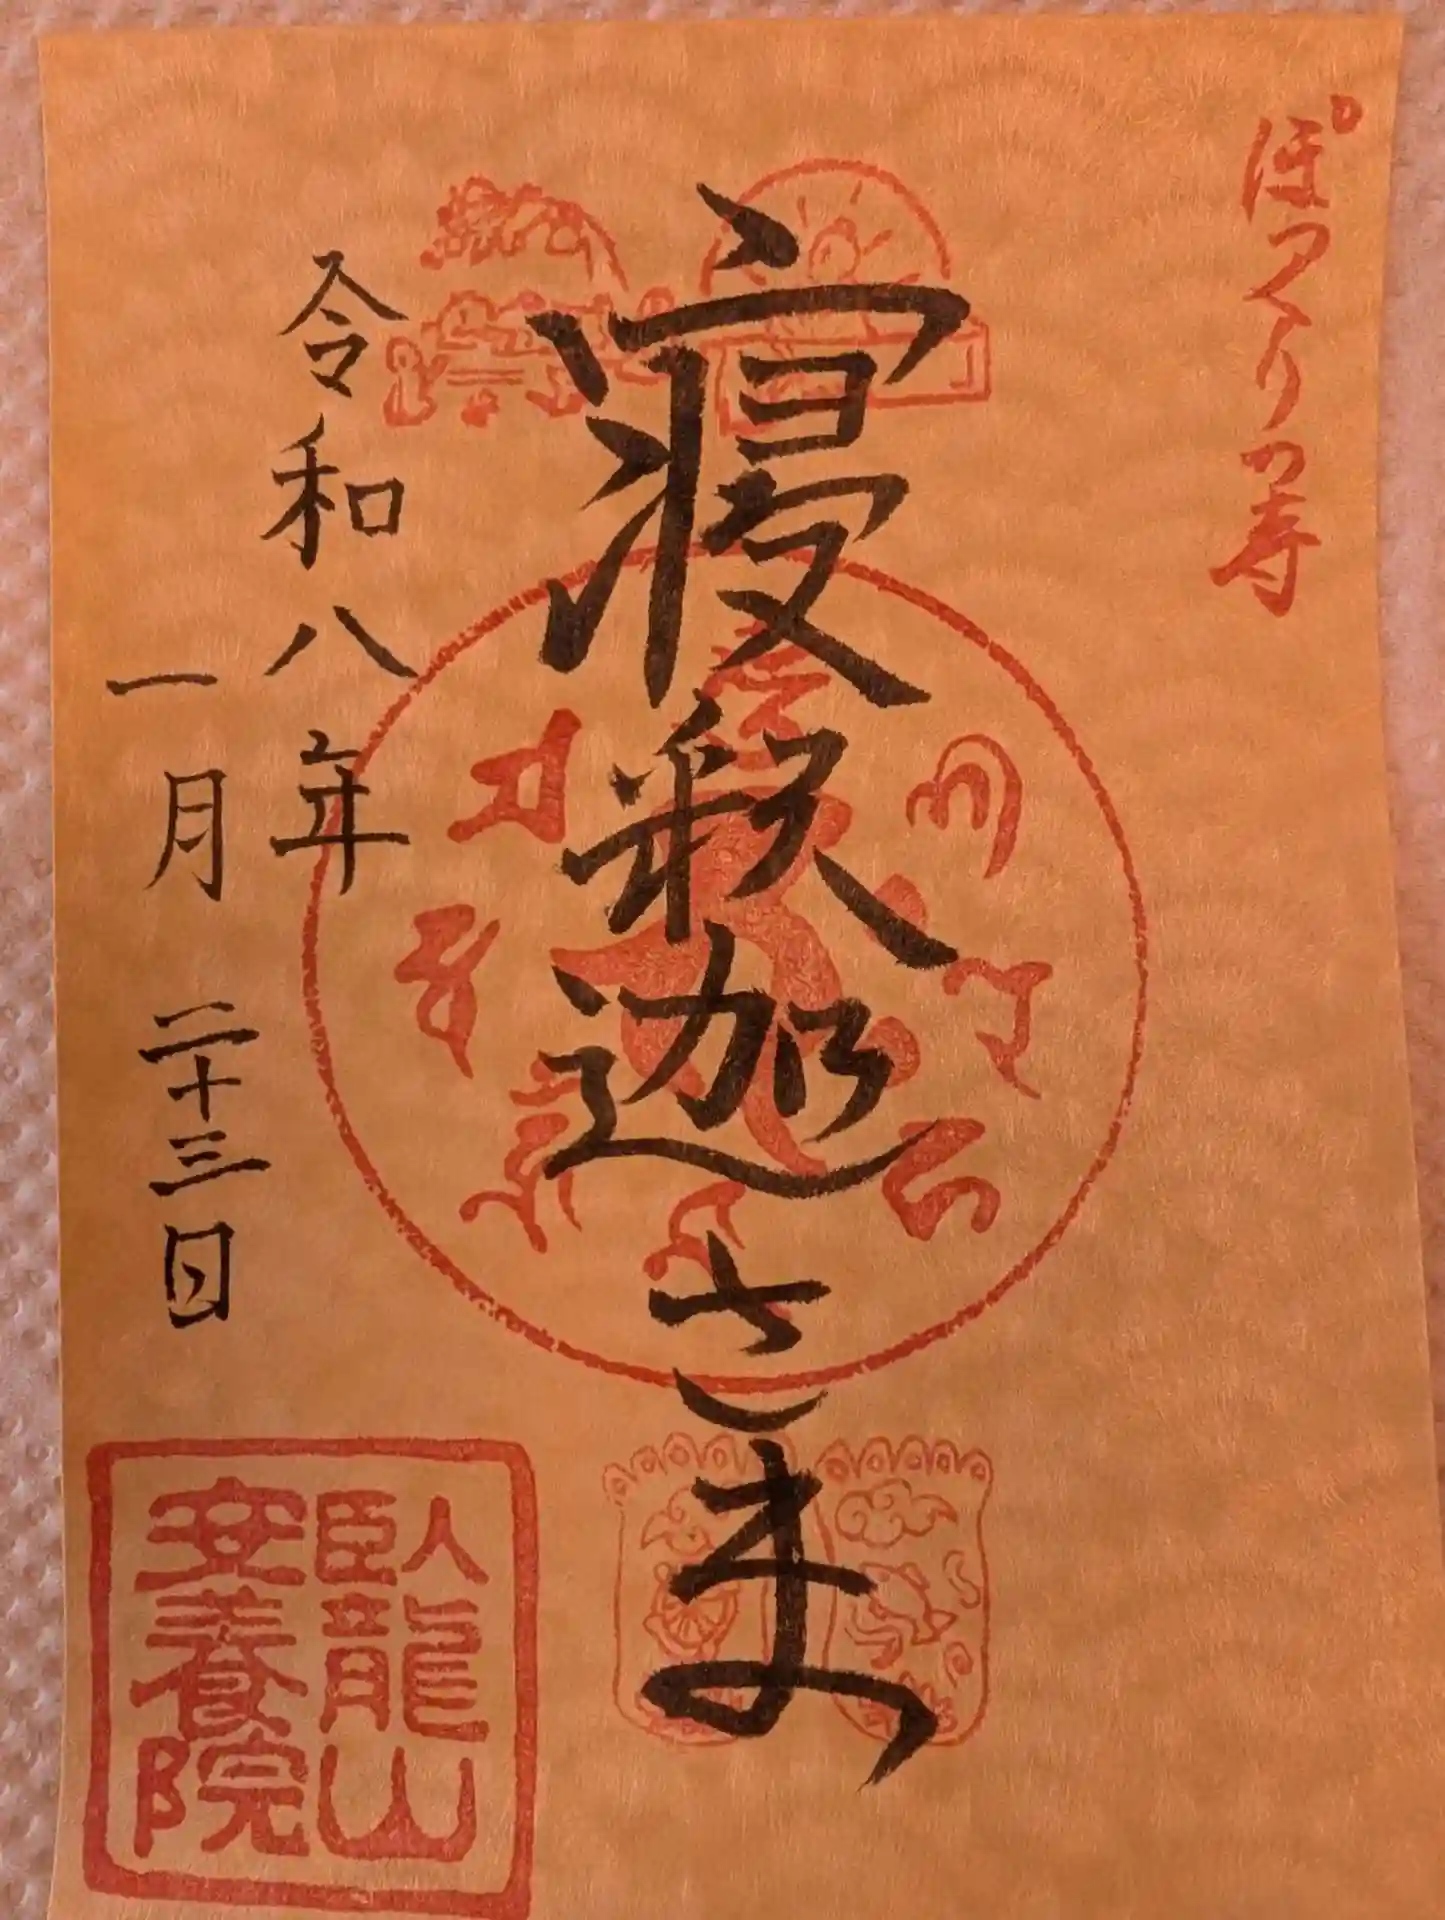 ぽっくりの寺
寝釈迦さま
令和八年
一月二十三日
臥龍山
安養院